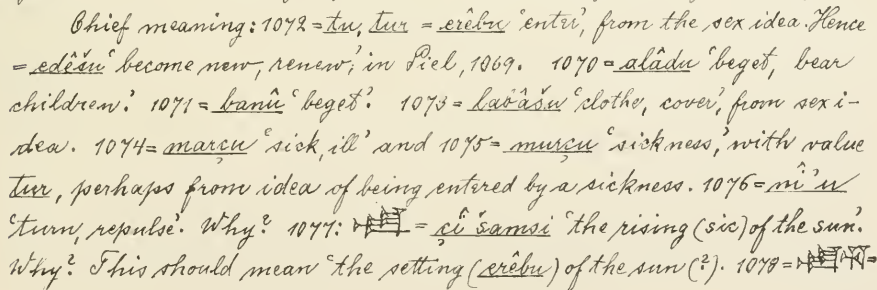 Chief meaning: 1072 = tu, tur = erêbu 'enter', from the sex idea. Hence
= edêšu 'become new, renew', in Piel, 1069. 1070 = alâdu 'beget, bear
children'. 1071 = banû 'beget'. 1073 = labâšu 'clothe, cover', from sex i-
dea. 1074 = marçu 'sick, ill' and 1075 = murçu 'sickness,' with value
tur, perhaps from idea of being entered by a sickness. 1076 = nî'u
'turn, repulse'. Why? 1077: = çî šamsi 'the rising (sic) of the sun'.
Why? This should mean 'the setting (erêbu) of the sun (?). 1078 = =